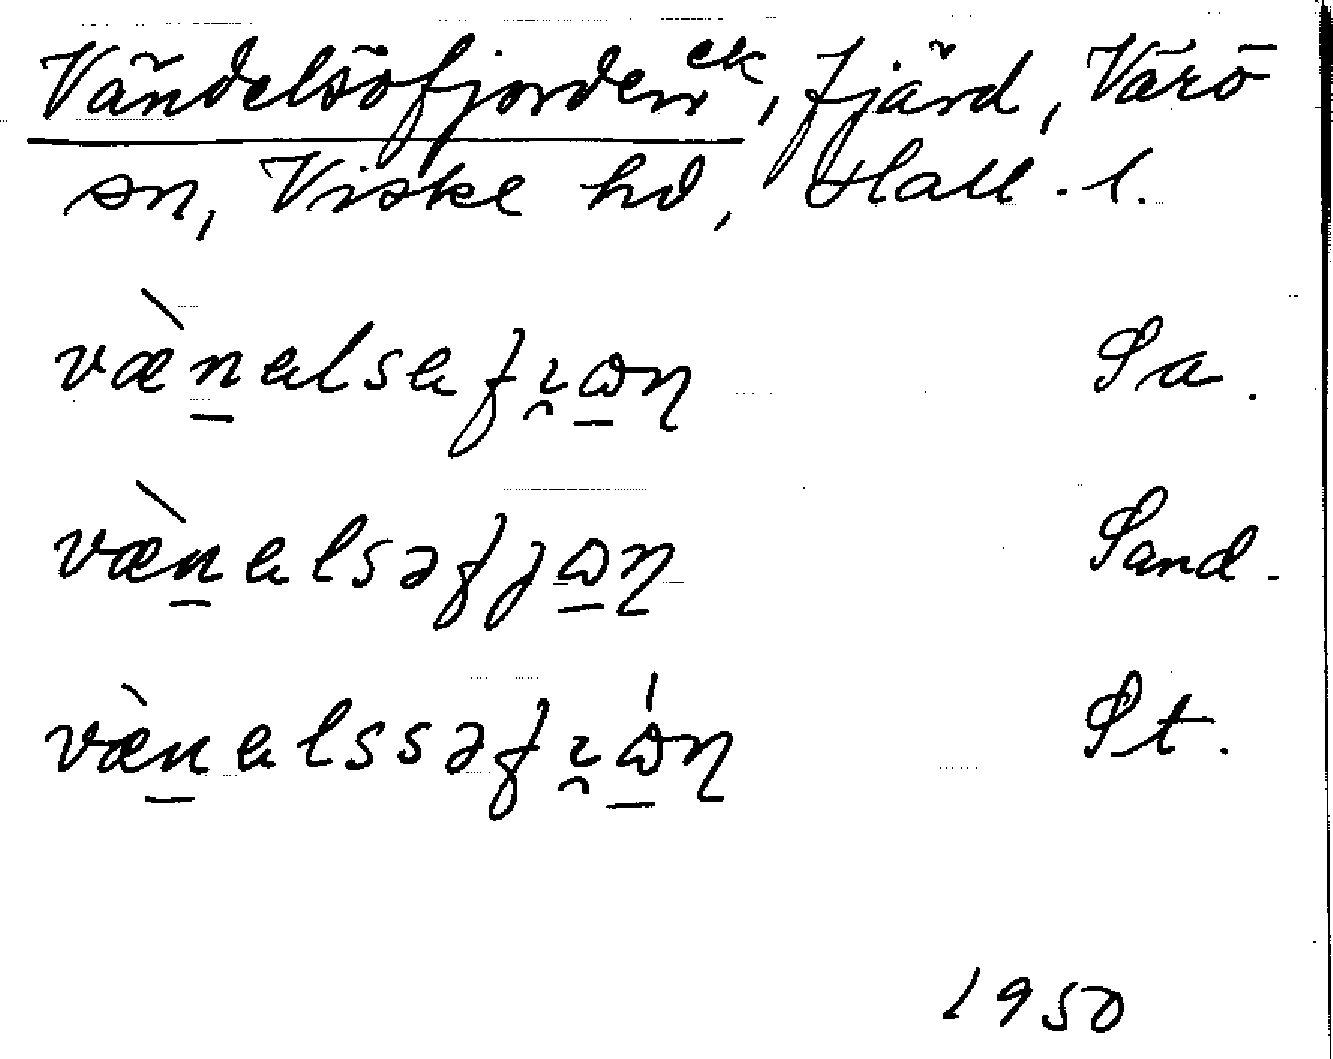 Vändelsöfjorden ek, fjärd, Värö
sn, Viske hd, Hall. l.
væ̀n̲alsafı̯ɷ̲ɳ Sa.
væ̀n̲alsəfjɷ̲ɳ Sand.
væ̀n̲alssəfı̯ɷ̲́ɳ St.
1950